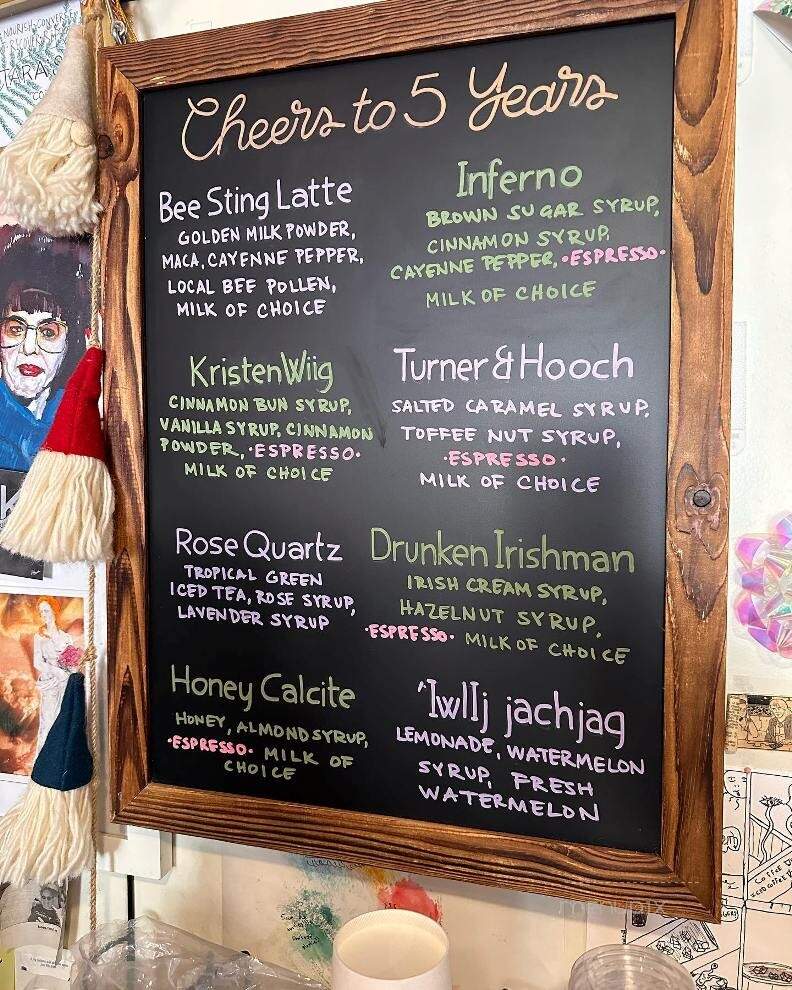 Cheers to 5 Years
Bee Sting Latte
GOLDEN MILK POWDER,
MACA, CAYENNE PEPPER,
LOCAL BEE POLLEN,
MILK OF CHOICE
Inferno
BROWN SUGAR SYRUP,
CINNAMON SYRUP,
CAYENNE PEPPER, •ESPRESSO•
MILK OF CHOICE
KristenWiig
CINNAMON BUN SYRUP,
VANILLA SYRUP, CINNAMON
POWDER, •ESPRESSO•
MILK OF CHOICE
Turner & Hooch
SALTED CARAMEL SYRUP,
TOFFEE NUT SYRUP,
•ESPRESSO•
MILK OF CHOICE
Rose Quartz
TROPICAL GREEN
ICED TEA, ROSE SYRUP,
LAVENDER SYRUP
Drunken Irishman
IRISH CREAM SYRUP,
HAZELNUT SYRUP,
•ESPRESSO• MILK OF CHOICE
Honey Calcite
HONEY, ALMOND SYRUP,
•ESPRESSO• MILK OF
CHOICE
'IwlIj jachjag
LEMONADE, WATERMELON
SYRUP, FRESH
WATERMELON